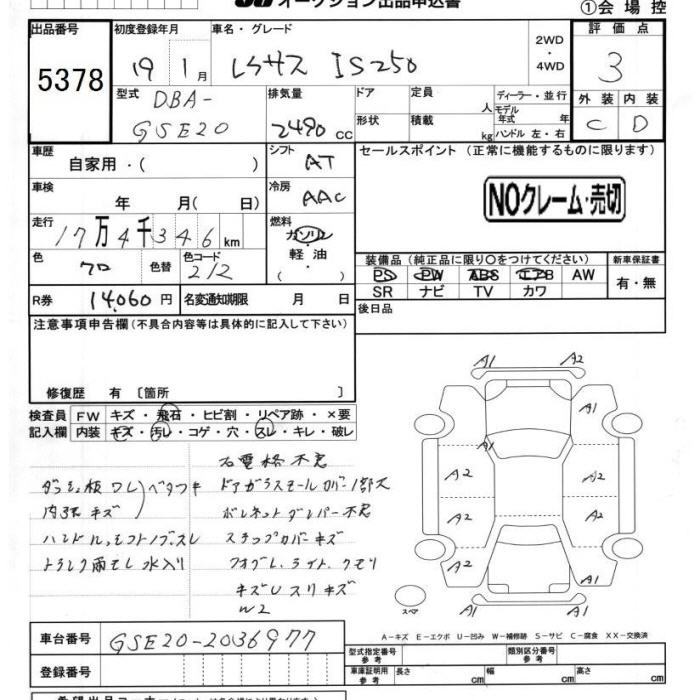 オークション出品申込書
①会場控
出品番号
5378
初度登録年月
19 1月
車名・グレード
レクサス IS250
2WD
・
4WD
評価点
3
型式
DBA-
GSE20
排気量
2490 cc
ドア
形状
定員 人
積載 kg
ディーラー・並行
モデル
年式 年
ハンドル 左・右
外装
C
内装
D
車歴
自家用・( )
シフト
AT
セールスポイント (正常に機能するものに限ります)
NOクレーム・売切
車検
年 月( 日)
冷房
AAC
走行
17万4千346km
燃料
ガソリン
・
軽油
・
( )
色
クロ
色替
色コード
212
装備品 (純正品に限り○をつけてください)
PS PW ABS エアB AW
SR ナビ TV カワ
新車保証書
有・無
R券
14,060円
名変通知期限
月 日
後日品
注意事項申告欄 (不具合内容等は具体的に記入して下さい)
修復歴 有 〔箇所 〕
検査員
記入欄
FW キズ・飛石・ヒビ割・リペア跡・×要
内装 キズ・汚レ・コゲ・穴・スレ・キレ・破レ
ダッシュ板ワレ ベタツキ
内張キズ
ハンドル、シフトノブスレ
トランク雨モレ水入り
ドアガラスモールカバー1部欠
ボンネットダンパー不良
ステップカバーキズ
フォグL、ライトクモリ
キズUスリキズ
W2
A1
A2
A1
A1
A2
A2
A2
A2
A2
A1
A2
A1
スペア
A-キズ E-エクボ U-凹み W-補修跡 S-サビ C-腐食 XX-交換済
車台番号
GSE20-2036977
登録番号
型式指定番号
参考
類別区分番号
参考
車庫証明用
参考
長さ cm
幅 cm
高さ cm